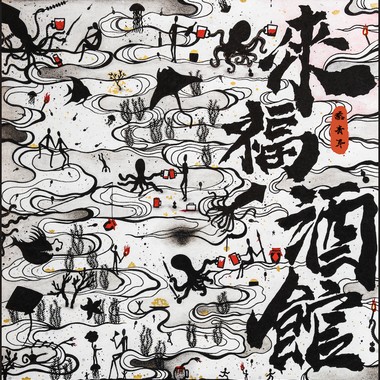 來福酒館